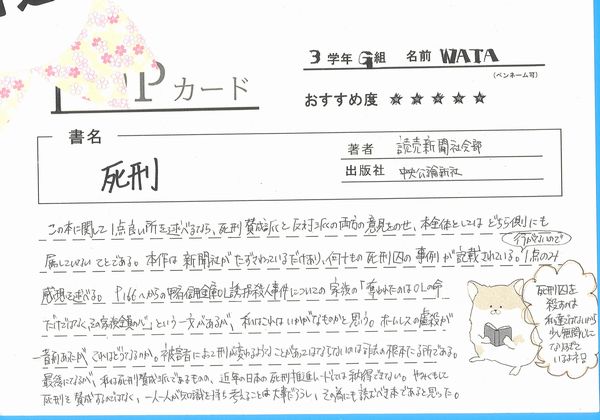 3 学年 G組 名前 WATA
(ペンネーム可)
POPカード
おすすめ度 ★★★★★
書名
死刑
著者 読売新聞社会部
出版社 中央公論新社
この本に関して1点良い所を述べるなら、死刑賛成派と反対派の両方の意見をのせ、本全体としてはどちら側にも
属していないことである。本作は新聞社がたずさわっているだけあり、何十もの死刑囚の事例が記載されている。1点のみ
行がないので
感想を述べる。P.166からの甲府信用金庫OL誘拐殺人事件についての家族の「奪われたのはOLの命
だけでなく、その家族全員の心」という一文があるが、私はこれはいかがなものかと思う。ホームレスの虐殺が
昔前あったが、それはどうなるのか。被害者によって刑が変わるようなことがあってはならないのは司法の根本たる所である。
最後になるが、私は死刑賛成派であるものの、近年の日本の死刑推進ムードには納得できない。やみくもに
死刑を賛成するべきではなく、一人一人が知識を持ち考えることは大事だろうし、その為にも読むべき本であると思った。
死刑囚を
殺すのは
私達なのだから
少し無関心に
なりすぎて
いるよネ